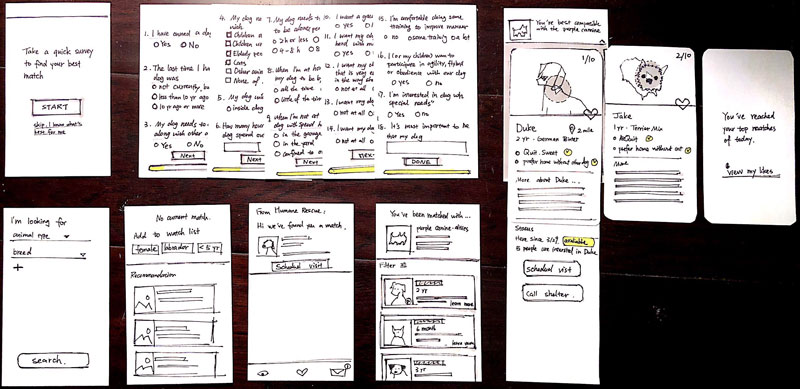 Take a quick survey
to find your best
match
START
skip, I know what's
best for me
1. I have owned a do
Yes No
2. The last time I ha
dog was
not currently, bu
less than 10 yr ago
10 yr ago or more
3. My dog needs to
along with other
Yes No
Next
4. My dog ne
with
Children a
Children u
Elderly peo
Cats
Other anim
None of
5. My dog wi
inside
6. How many hour
dog spend
Next
7. My dog needs t
to be alone per
2h or less
4-8 h 8
8. When I'm at ho
my dog to be b
all the time
little of the tim
9. When I'm not at
dog will spend
in the garage
in the yard
confined to a
Next
10. I want a gua
yes
11. I want my do
hand with m
not at all
12. I want my
that is very
in the way
not at all
13. I want my dog
not at all
14. I want my d
not at all
Next
15. I'm comfortable doing some
training to improve manner
no some training a lot
16. I (or my children) want to
participate in agility, flyball
or obedience with our dog
yes no
17. I'm interested in dog w/
special needs"
Yes No
18. It's most important to me
that my dog
DONE
You're best compatible
with the purple canine
1/10
Duke 2 mile
2 yr - German
Quit. Sweet
prefer home without other dog
More about Duke ...
Status
Here since 3/29 available
5 people are interested in Duke
schedual visit
call shelter.
2/10
Jake
1 yr - Terrier Mix
Quit
prefer home without cat
More
You've reached
your top matches
of today.
view my likes
I'm looking for
animal type
breed
+
search.
No current match.
Add to watch list
female labrador < 5 yr
Recommendation
From Humane Rescue:
Hi we've found you a match.
Schedual visit
You've been matched with...
purple canine-
Filter
2 yr
learn more
6 month
learn more
3 yr